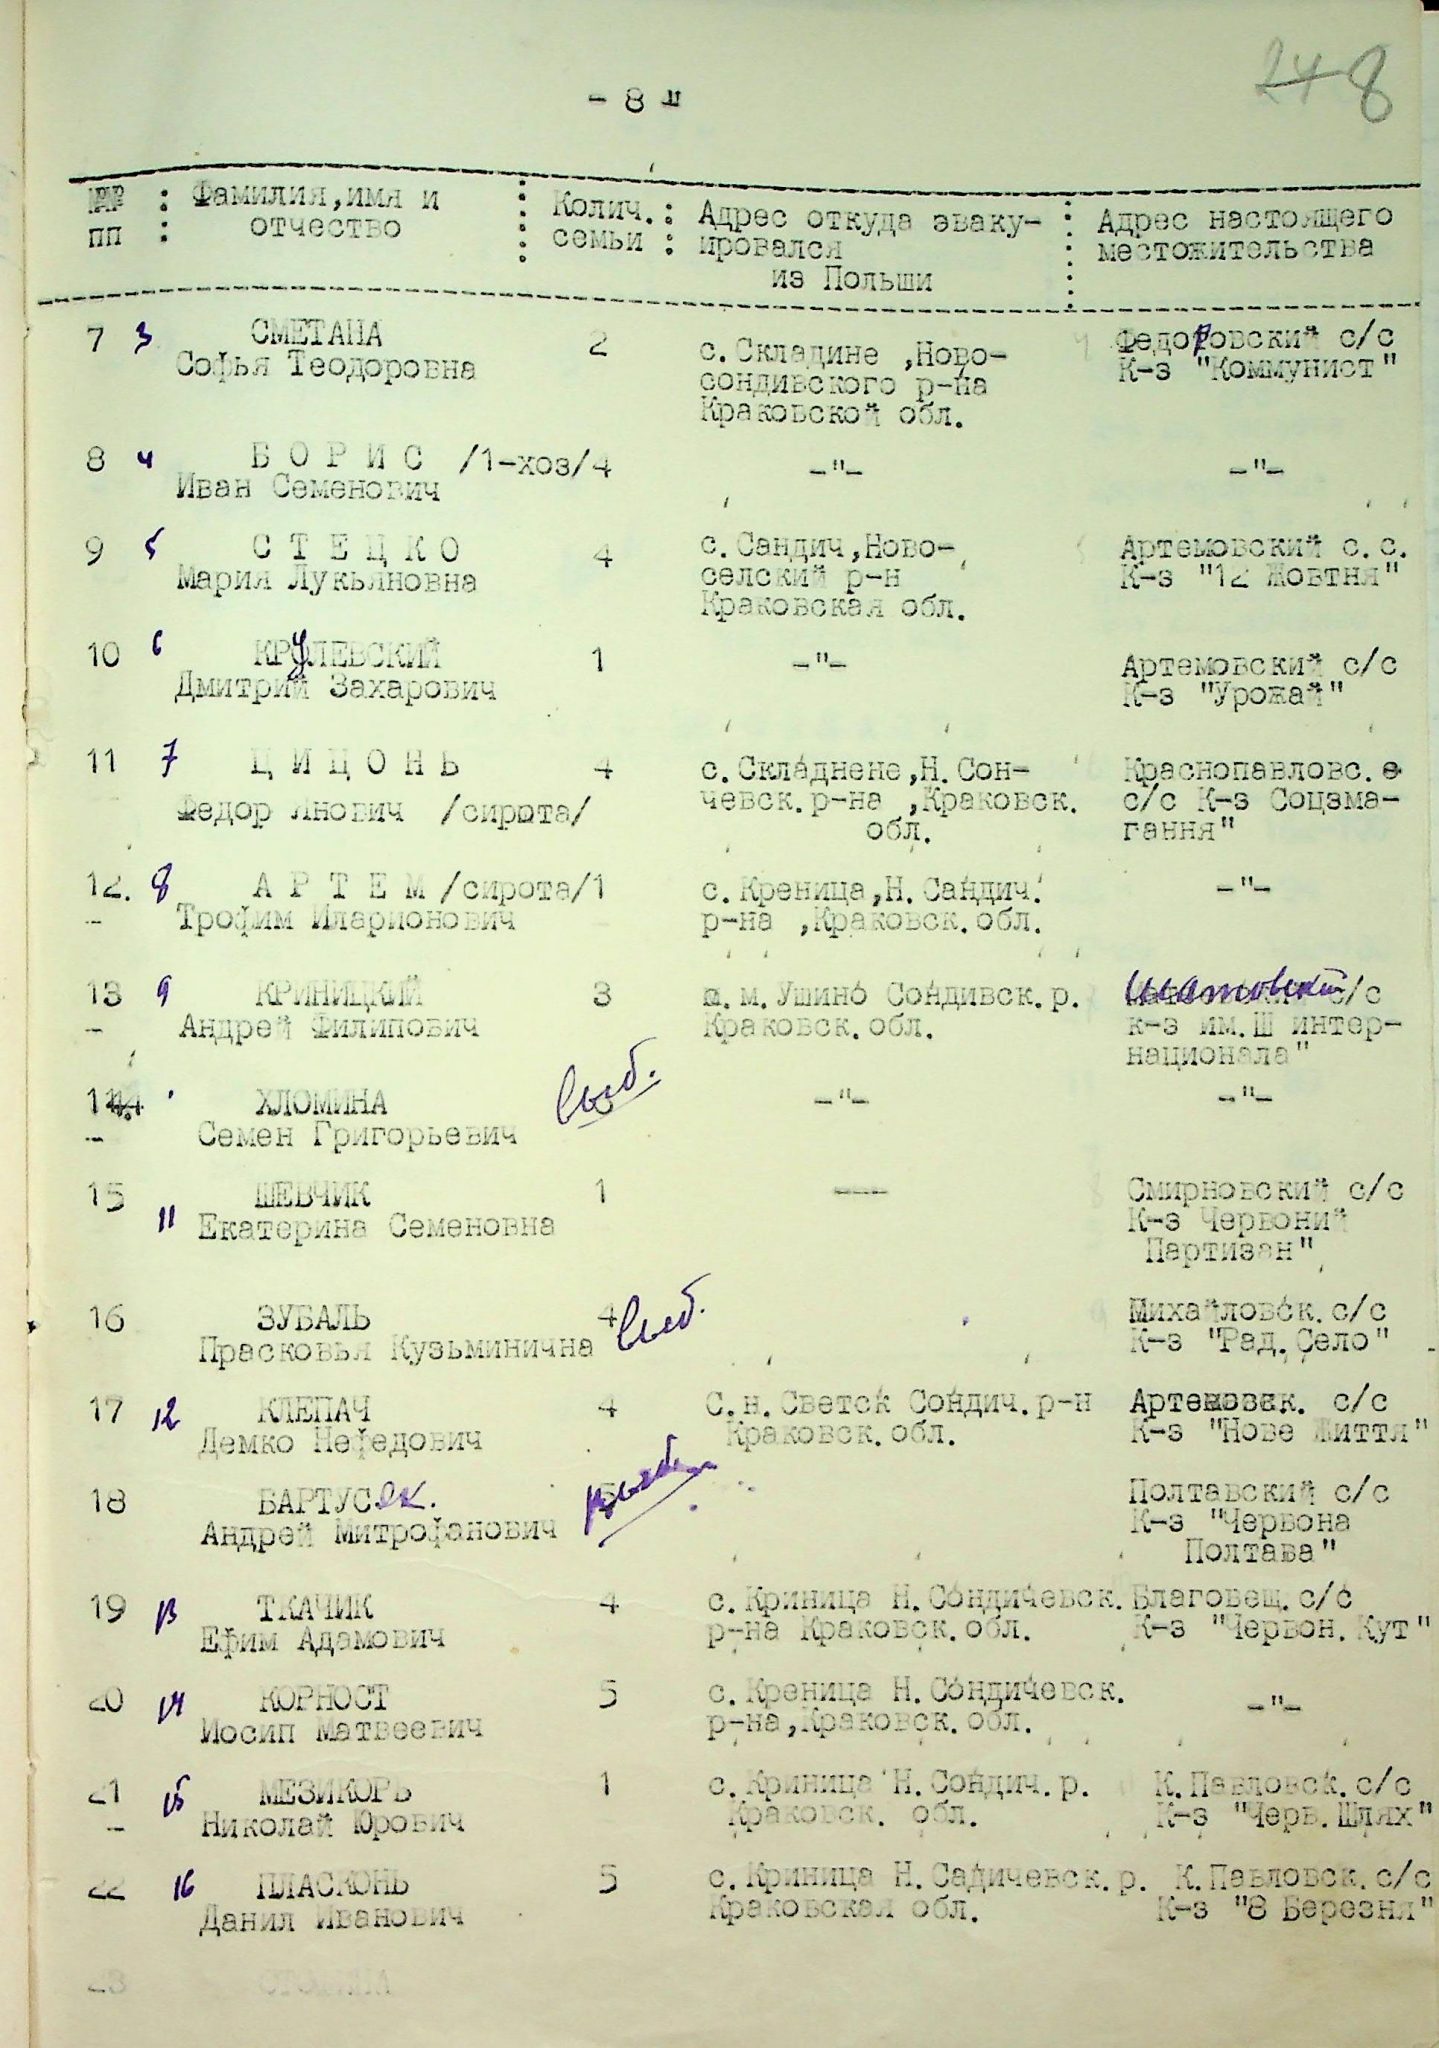 24 8
- 8 "
№№ : Фамилия,имя и : Колич. : Адрес откуда эваку- : Адрес настоящего
пп : отчество : семьи : ировался : местожительства
из Польши
7 3 СМЕТАНА 2 с.Складине ,Ново- Федоровский с/с
Софья Теодоровна сондивского р-на К-з "Коммунист"
Краковской обл.
8 4 Б О Р И С /1-хоз/4 -"- -"-
Иван Семенович
9 5 С Т Е Ц К О 4 с.Сандич,Ново- Артемовский с.с.
Мария Лукьяновна селский р-н К-з "12 Жовтня"
Краковская обл.
10 6 КРУЛЕВСКИЙ 1 -"- Артемовский с/с
Дмитрий Захарович К-з "Урожай"
11 7 Ц И Ц О Н Ь 4 с.Складнене,Н.Сон- Краснопавловс.
Федор Янович /сирота/ чевск.р-на ,Краковск. с/с К-з Соцзма-
обл. гання"
12. 8 А Р Т Е М /сирота/1 с.Креница,Н.Сандич. -"-
- Трофим Иларионович р-на ,Краковск.обл.
13 9 КРИНИЦКИЙ 3 м.Ушино Сондивск.р. Шатовский с/с
- Андрей Филипович Краковск.обл. к-з им.Ш интер-
национала"
14 ХЛОМИНА выб. -"- -"-
- Семен Григорьевич
15 ШЕВЧИК 1 --- Смирновский с/с
11 Екатерина Семеновна К-з Червоний
Партизан"
16 ЗУБАЛЬ 4 выб. Михайловск.с/с
Прасковья Кузьминична К-з "Рад.Село"
17 12 КЛЕПАЧ 4 С.н.Светск Сондич.р-н Артемовск. с/с
Демко Нефедович Краковск.обл. К-з "Нове Життя"
18 БАРТУСяк. выб. Полтавский с/с
Андрей Митрофанович К-з "Червона
Полтава"
19 13 ТКАЧИК 4 с.Криница Н.Сондичевск. Благовещ.с/с
Ефим Адамович р-на Краковск.обл. К-з "Червон.Кут"
20 14 КОРНОСТ 5 с.Креница Н.Сондичевск. -"-
Иосип Матвеевич р-на,Краковск.обл.
21 15 МЕЗИКОРЬ 1 с.Криница Н.Сондич.р. К.Павловск.с/с
- Николай Юрович Краковск. обл. К-з "Черв.Шлях"
22 16 ПЛАСКОНЬ 5 с.Криница Н.Садичевск.р. К.Павловск.с/с
Данил Иванович Краковская обл. К-з "8 Березня"
23